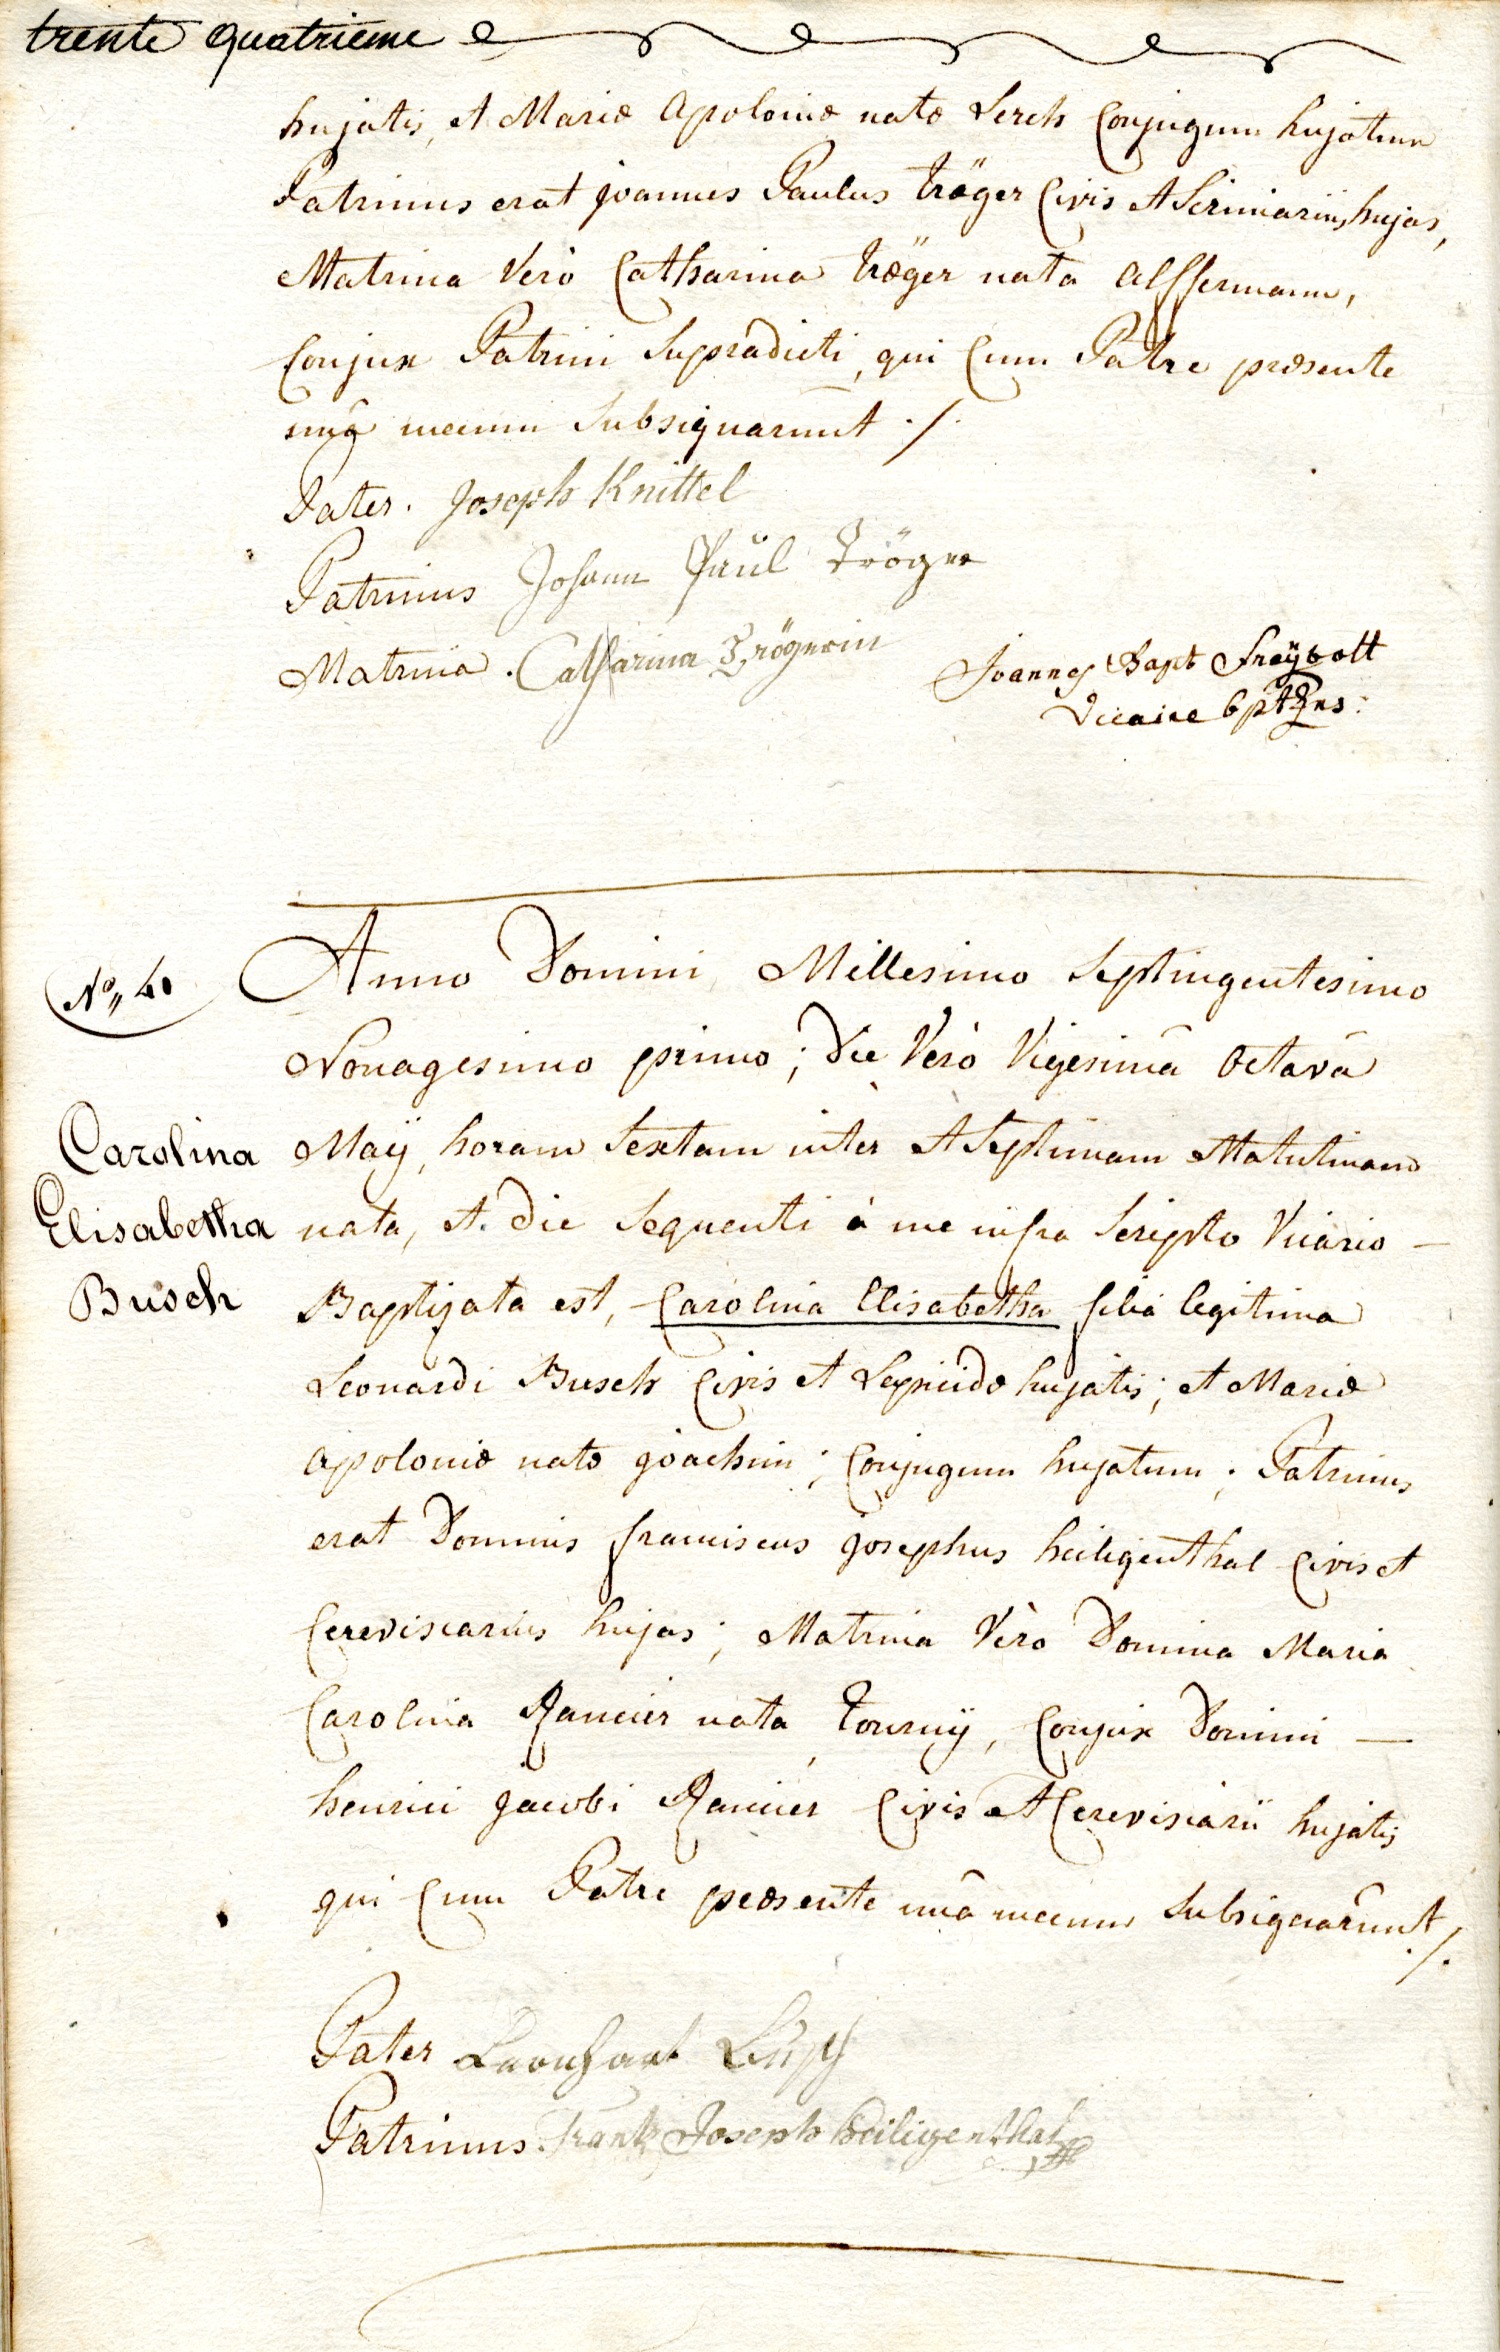 trente quatrieme
hujatis, et Mariæ Apoloniæ natæ Lerch Conjugum hujatum
Patrinus erat joannes Paulus Tröger Civis et Scriniarius hujas,
Matrina Verò Catharina Tröger nata
Conjux Patrini Supradicti, qui Cum Patre præsente
unâ mecum Subsignarunt ./.
Pater. Joseph Knittel
Patrinus Johann Paul Tröger
Matrina. Catharina Trögerin
Joannes Bapt Freÿvolt
Vicaire
Nº„ 40
Anno Domini Millesimo Septingentesimo
Nonagesimo primo; Die Verò Vigesimâ Octavâ
Maÿ, horam Sextam inter et Septimam Matutinam
Carolina
Elisabetha
Busch
nata, et die Sequenti à me infra Scripto Vicario —
Baptizata est, Carolina Elisabetha filia legitima
Leonardi Busch Civis et Lapicidæ hujatis; et Mariæ
Apoloniæ natæ joachim; Conjugum hujatum; Patrinus
erat Dominus franciscus josephus heiligenthal Civis et
Cerevisiarius hujas; Matrina Vèro Domina Maria
Carolina Rancier nata Tournÿ, Conjux Domini —
henrici jacobi Rancier Civis et Cerevisiarii hujatis
qui Cum Patre præsente unâ mecum Subsignarunt ./.
Pater Leonhart
Patrinus Frantz Joseph Heiligenthal